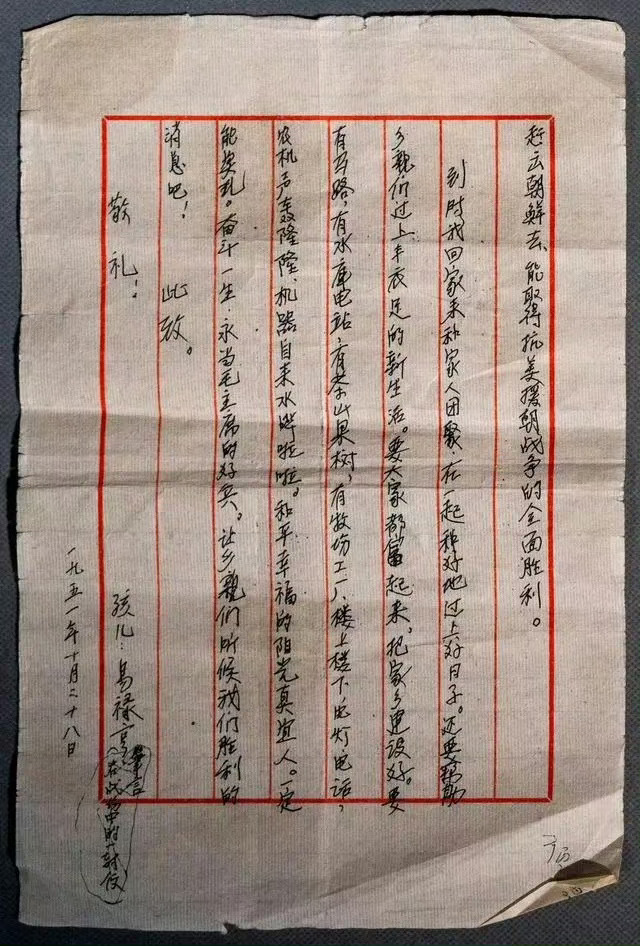 赶出朝鲜去，能取得抗美援朝战争的全面胜利。
到时我回家来和家人团聚，在一起种好地过上好日子。还要帮助
乡亲们过上丰衣足的新生活。要大家都富起来，把家乡建设好。要
有马路，有水库电站，有茶山果树，有牧场工厂、楼上楼下，电灯电话，
农机声轰隆隆，机器自来水哗啦啦。和平幸福的阳光真宜人。定
能实现。奋斗一生，永当毛主席的好兵。让乡亲们听候我们胜利的
消息吧！
此致。
敬礼！
孩儿：易禄亨
（在战场中的一封信
一九五一年十月二十八日